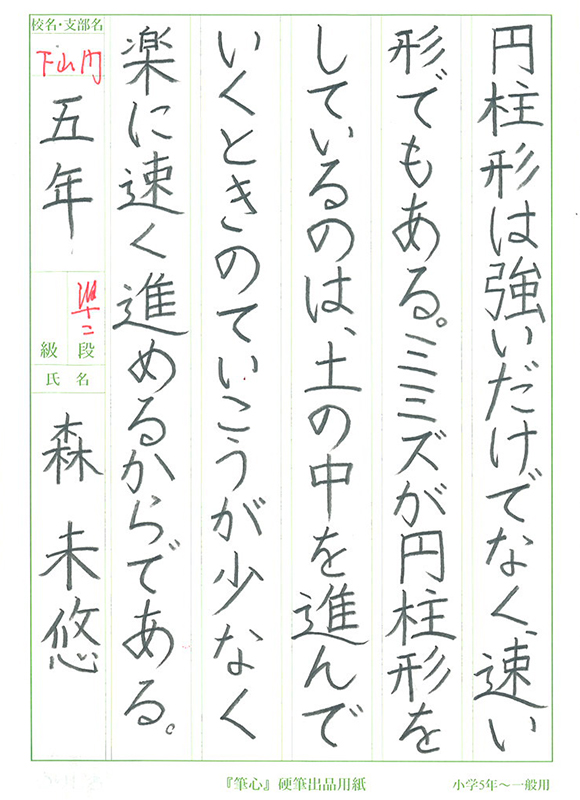 円柱形は強いだけでなく、速い
形でもある。ミミズが円柱形を
しているのは、土の中を進んで
いくときのていこうが少なく
楽に速く進めるからである。
校名・支部名
下山門
五年
準二
段
級
氏名
森未悠
『筆心』硬筆出品用紙
小学5年〜一般用